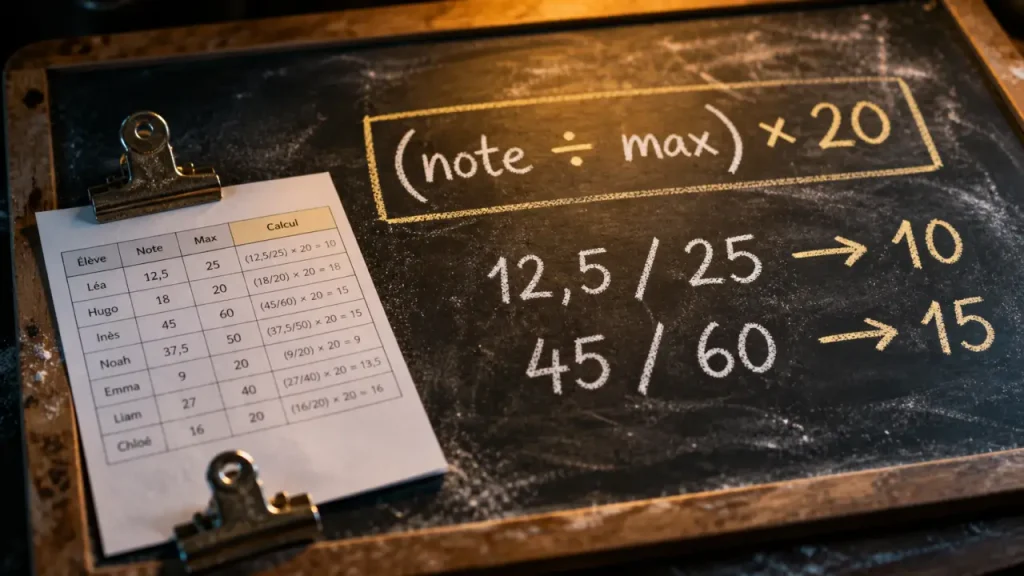 (note ÷ max) × 20
12,5 / 25 → 10
45 / 60 → 15
Élève Note Max Calcul
Léa 12,5 25 (12,5/25) × 20 = 10
Hugo 18 20 (18/20) × 20 = 18
Inès 45 60 (45/60) × 20 = 15
Noah 37,5 50 (37,5/50) × 20 = 15
Emma 9 20 (9/20) × 20 = 9
Liam 27 40 (27/40) × 20 = 13,5
Chloé 16 20 (16/20) × 20 = 16